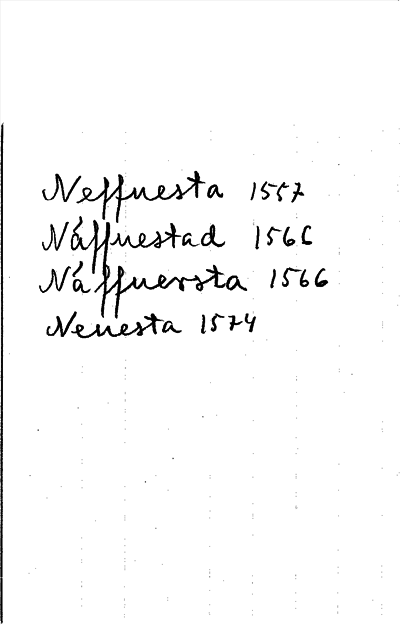 Neffuesta 1557
Náffuestad 1566
Náffuersta 1566
Neuesta 1574